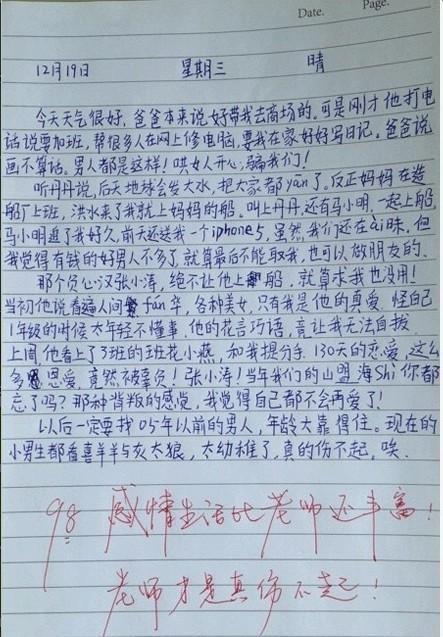 Date.
Page.
12月19日 星期三 晴
今天天气很好,爸爸本来说好带我去商场的。可是刚才他打电
话说要加班,帮很多人在网上修电脑,要我在家好好写日记。爸爸说
画不算话。男人都是这样!哄女人开心,骗我们!
听丹丹说,后天地球会发大水,把大家都yān了。反正妈妈在造
船厂上班,洪水来了我就上妈妈的船。叫上丹丹,还有马小明,一起上船,
马小明追了我好久,前天还送我一个iphone5,虽然我们还在ài昧,但
我觉得有钱的好男人不多了,就算最后不能取我,也可以做朋友的。
那个负心汉张小涛,绝不让他上船,就算求我也没用!
当初他说看遍人间fán华,各种美女,只有我是他的真爱,怪自己
1年级的时候太年轻不懂事,他的花言巧语,竟让我无法自拔
上周他看上了3班的班花小燕,和我提分手,130天的恋爱,这么
多恩爱,竟然被辜负!张小涛!当年我们的山盟海Shì你都
忘了吗?那种背叛的感觉,我觉得自己都不会再爱了!
以后一定要找05年以前的男人,年龄大靠得住。现在的
小男生都看喜羊羊与灰太狼,太幼稚了,真的伤不起,唉.
98 感情生活比老师还丰富!
老师才是真伤不起!